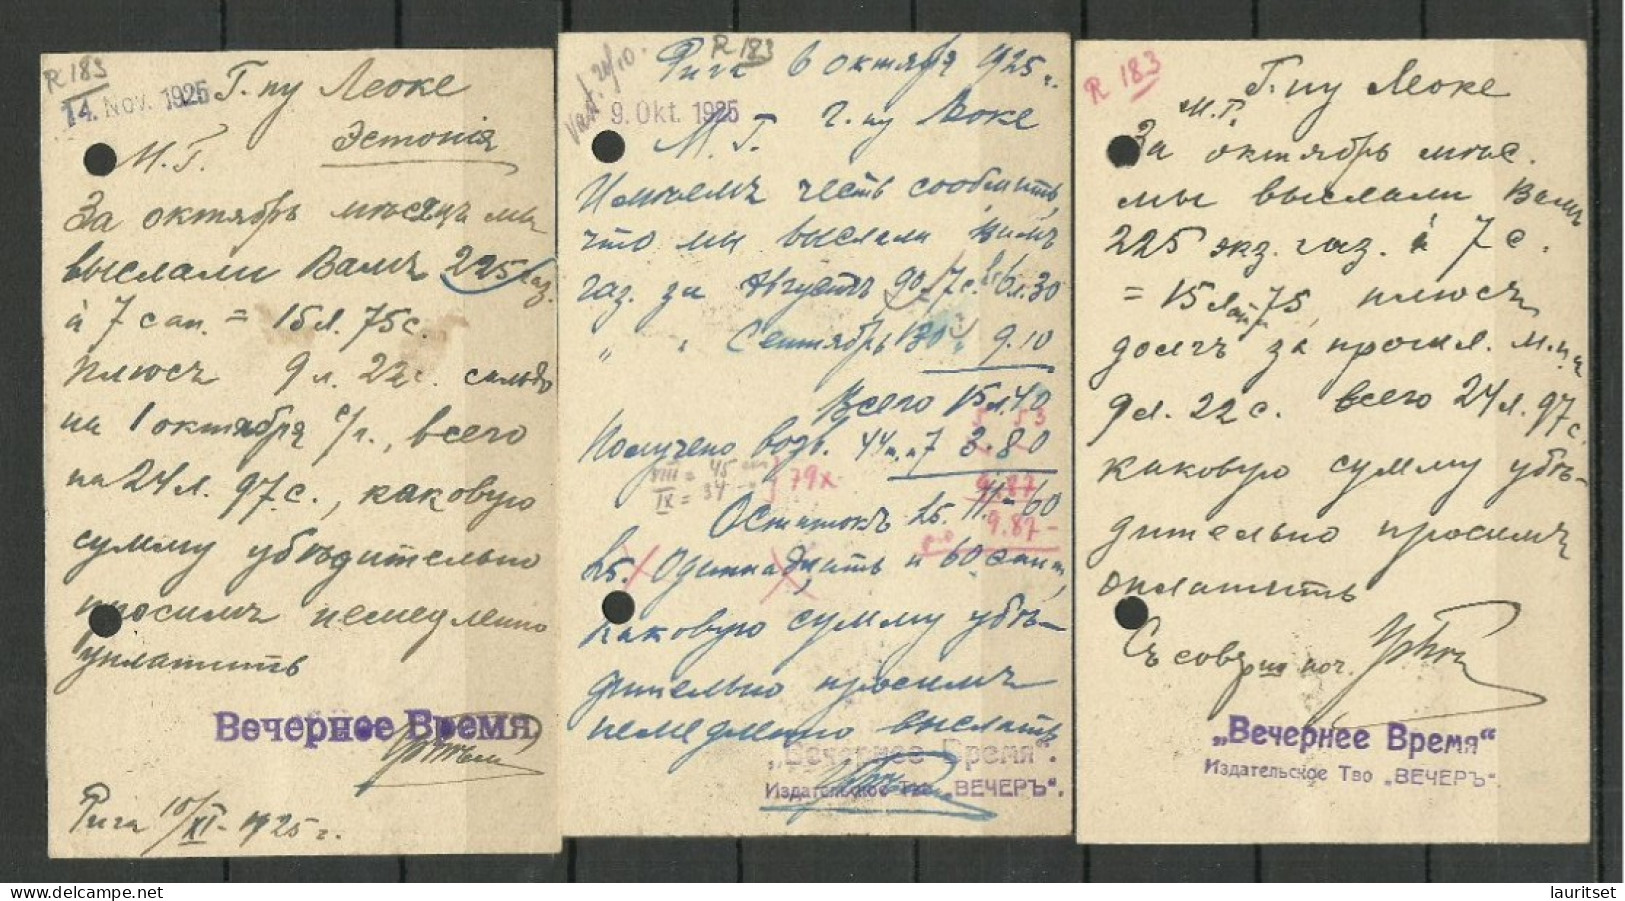 R 183
14. Nov. 1925
Г-ну Леоке
Эстонія
М. Г.
За октябрь мѣсяцъ мы
выслали Вамъ 225 газ.
à 7 сан. = 15 л. 75 с.
плюсъ 9 л. 22 с. сальдо
на 1 октября с/г., всего
на 24 л. 97 с., каковую
сумму убѣдительно
просимъ немедленно
уплатить
Вечернее Время
Рига 10/XI - 1925 г.
R 183
Рига 6 октября 1925 г.
9. Okt. 1925
г-ну Леоке
М. Г.
Имѣемъ честь сообщить,
что мы выслали Вамъ
газ. за Августъ 90 à 7 с. Ls 6.30
" " Сентябрь 130 " 9.10
Всего 15 л. 40
5 53
Получено возвр. 44 à 7 3.80
VIII = 45
IX = 34
79x
9.87
Остатокъ Ls. 11.-60
9.87-
Ls. Одиннадцать и 60 сант.,
каковую сумму убѣ-
дительно просимъ
немедленно выслать
„Вечернее Время“.
Издательское Тво „ВЕЧЕРЪ“.
R 183
Г-ну Леоке
М. Г.
За октябрь мѣс.
мы выслали Вамъ
225 экз. газ. à 7 с.
= 15 лат 75, плюсъ
долгъ за прошл. м-цъ
9 л. 22 с. всего 24 л. 97 с.
каковую сумму убѣ-
дительно просимъ
оплатить
Съ соверш. поч.
„Вечернее Время“
Издательское Тво „ВЕЧЕРЪ“.
lauritset